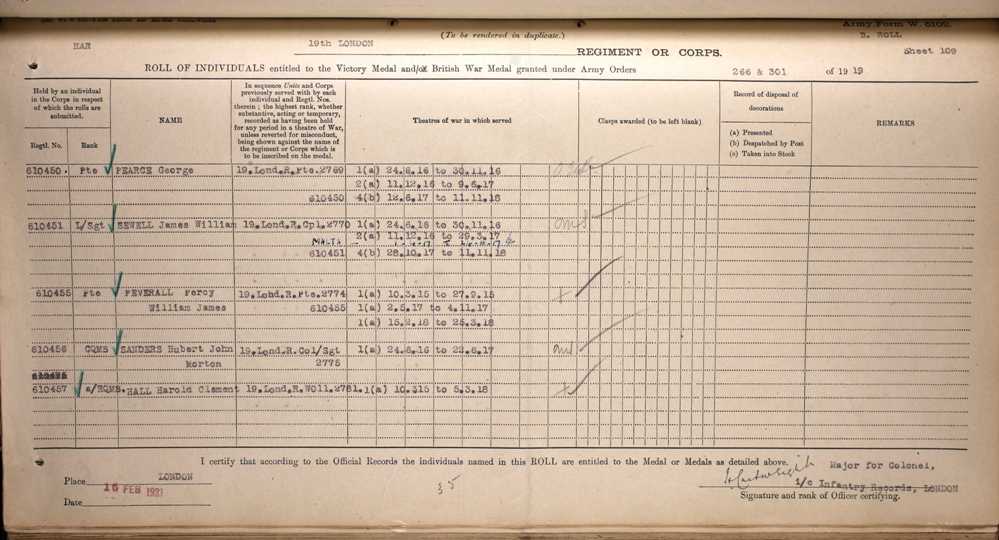 (To be rendered in duplicate.)
Army Form W. 5102.
HAH
19th LONDON
REGIMENT OR CORPS.
B. ROLL
Sheet 109
ROLL OF INDIVIDUALS entitled to the Victory Medal and/or British War Medal granted under Army Orders 266 & 301 of 1919
Held by an individual in the Corps in respect of which the rolls are submitted.
Regtl. No.
Rank
NAME
In sequence Units and Corps previously served with by each individual and Regtl. Nos. therein ; the highest rank, whether substantive, acting or temporary, recorded as having been held for any period in a theatre of War, unless reverted for misconduct, being shown against the name of the regiment or Corps which is to be inscribed on the medal.
Theatres of war in which served
Clasps awarded (to be left blank)
Record of disposal of decorations
(a) Presented
(b) Despatched by Post
(c) Taken into Stock
REMARKS
610450. Pte PEARCE George 19.Lond.R.Pte.2769 1(a) 24.6.16 to 30.11.16
2(a) 11.12.16 to 9.6.17
610450 4(b) 12.6.17 to 11.11.18
610451 L/Sgt SEWELL James William 19.Lond.R.Cpl.2770 1(a) 24.6.16 to 30.11.16
2(a) 11.12.16 to 29.3.17
MALTA
610451 4(b) 28.10.17 to 11.11.18
610455 Pte PEVERALL Percy 19.Lond.R.Pte.2774 1(a) 10.3.15 to 27.9.15
William James 610455 1(a) 2.5.17 to 4.11.17
1(a) 15.2.18 to 25.3.18
610456 CQMS SANDERS Hubert John 19.Lond.R.Col/Sgt 1(a) 24.6.16 to 22.6.17
Morton 2775
610457 a/RQMS. HALL Harold Clement 19.Lond.R.WOll.2781. 1(a) 10.315 to 5.3.18
I certify that according to the Official Records the individuals named in this ROLL are entitled to the Medal or Medals as detailed above.
Place LONDON
Date 16 FEB 1921
35
Major for Colonel,
i/c Infantry Records, LONDON
Signature and rank of Officer certifying.